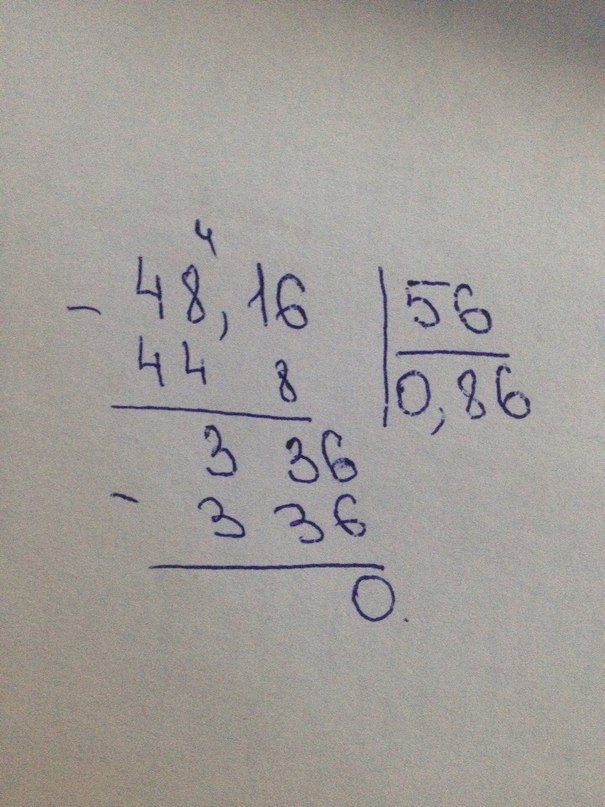 4
- 48,16 | 56
44 8 | 0,86
3 36
- 3 36
0.